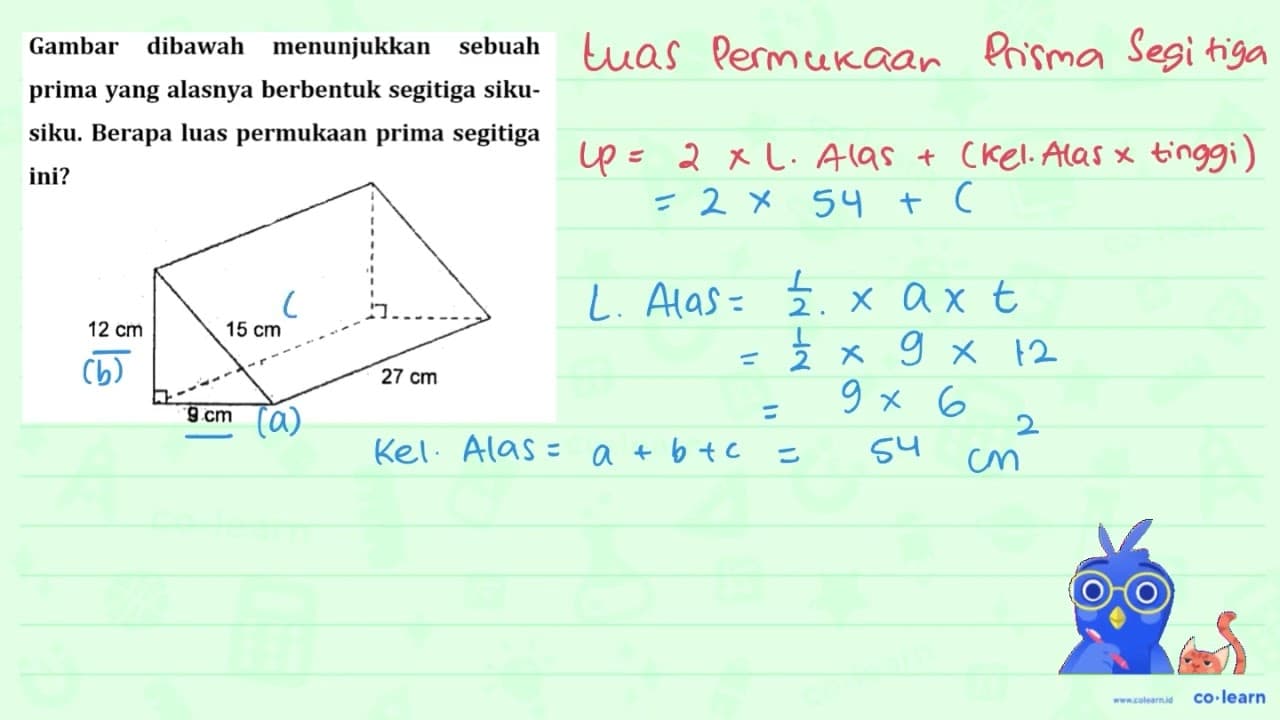 Gambar dibawah menunjukkan sebuah
prima yang alasnya berbentuk segitiga siku-
siku. Berapa luas permukaan prima segitiga
ini?
12 cm
(b)
15 cm
C
27 cm
9 cm
(a)
Luas Permukaan Prisma Segitiga
Lp = 2 x L. Alas + (Kel. Alas x tinggi)
= 2 x 54 + (
L. Alas = 1/2 . x a x t
= 1/2 x 9 x 12
= 9 x 6
Kel. Alas = a + b + c = 54 cm²
www.colearn.id
co·learn